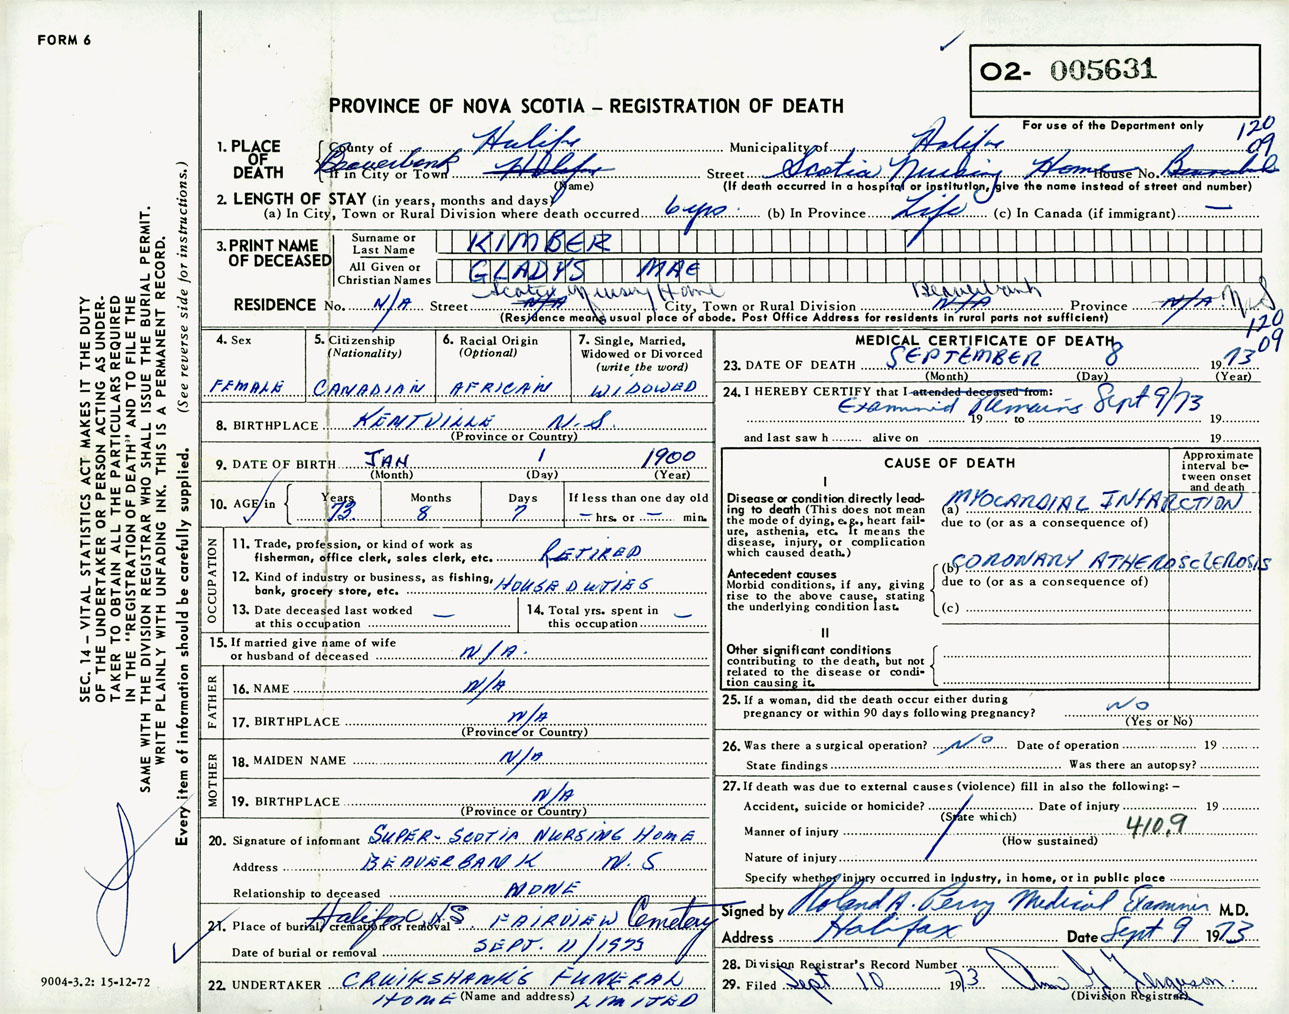 FORM 6
O2- 005631
PROVINCE OF NOVA SCOTIA – REGISTRATION OF DEATH
For use of the Department only
120
09
1. PLACE OF DEATH
County of Halifax Municipality of Halifax
Beaverbank
If in City or Town Halifax Street Scotia Nursing Home House No.
(Name) (If death occurred in a hospital or institution, give the name instead of street and number)
2. LENGTH OF STAY (in years, months and days)
(a) In City, Town or Rural Division where death occurred 6 yrs. (b) In Province Life (c) In Canada (if immigrant) —
3. PRINT NAME OF DECEASED
Surname or Last Name KIMBER
All Given or Christian Names GLADYS MAE
Scotia Nursing Home Beaverbank
RESIDENCE No. N/A Street N/A City, Town or Rural Division N/A Province N/A N.S
(Residence means usual place of abode. Post Office Address for residents in rural parts not sufficient)
120
09
4. Sex
FEMALE
5. Citizenship
(Nationality)
CANADIAN
6. Racial Origin
(Optional)
AFRICAN
7. Single, Married, Widowed or Divorced
(write the word)
WIDOWED
8. BIRTHPLACE KENTVILLE N.S.
(Province or Country)
9. DATE OF BIRTH JAN 1 1900
(Month) (Day) (Year)
10. AGE in
Years Months Days If less than one day old
73 8 7 — hrs. or — min.
OCCUPATION
11. Trade, profession, or kind of work as
fisherman, office clerk, sales clerk, etc. RETIRED
12. Kind of industry or business, as fishing,
bank, grocery store, etc. HOUSE DUTIES
13. Date deceased last worked
at this occupation —
14. Total yrs. spent in
this occupation —
15. If married give name of wife
or husband of deceased N/A.
FATHER
16. NAME N/A
17. BIRTHPLACE N/A
(Province or Country)
MOTHER
18. MAIDEN NAME N/A
19. BIRTHPLACE N/A
(Province or Country)
20. Signature of informant SUPER-SCOTIA NURSING HOME
Address BEAVERBANK N.S
Relationship to deceased NONE
21. Place of burial, cremation or removal Halifax N.S. FAIRVIEW Cemetery
Date of burial or removal SEPT. 11/1973
22. UNDERTAKER CRUIKSHANK'S FUNERAL
HOME (Name and address) LIMITED
MEDICAL CERTIFICATE OF DEATH
23. DATE OF DEATH SEPTEMBER 8 1973
(Month) (Day) (Year)
24. I HEREBY CERTIFY that I attended deceased from:
Examined Remains Sept 9/73
19 to 19
and last saw h alive on 19
CAUSE OF DEATH
Approximate interval between onset and death
I
Disease or condition directly leading to death (This does not mean the mode of dying, e.g., heart failure, asthenia, etc. It means the disease, injury, or complication which caused death.)
(a) MYOCARDIAL INFARCTION
due to (or as a consequence of)
Antecedent causes
Morbid conditions, if any, giving rise to the above cause, stating the underlying condition last.
(b) CORONARY ATHEROSCLEROSIS
due to (or as a consequence of)
(c)
II
Other significant conditions
contributing to the death, but not related to the disease or condition causing it.
25. If a woman, did the death occur either during
pregnancy or within 90 days following pregnancy? NO
(Yes or No)
26. Was there a surgical operation? No Date of operation 19
State findings Was there an autopsy?
27. If death was due to external causes (violence) fill in also the following: –
Accident, suicide or homicide? Date of injury 19
(State which)
Manner of injury 410.9
(How sustained)
Nature of injury
Specify whether injury occurred in industry, in home, or in public place
Signed by Roland A. Perry Medical Examiner M.D.
Address Halifax Date Sept 9 1973
28. Division Registrar's Record Number
29. Filed Sept 10 1973 Ferguson
(Division Registrar)
SEC. 14 – VITAL STATISTICS ACT MAKES IT THE DUTY
OF THE UNDERTAKER OR PERSON ACTING AS UNDER-
TAKER TO OBTAIN ALL THE PARTICULARS REQUIRED
IN THE "REGISTRATION OF DEATH" AND TO FILE THE
SAME WITH THE DIVISION REGISTRAR WHO SHALL ISSUE THE BURIAL PERMIT.
WRITE PLAINLY WITH UNFADING INK. THIS IS A PERMANENT RECORD.
Every item of information should be carefully supplied. (See reverse side for instructions.)
9004-3.2: 15-12-72